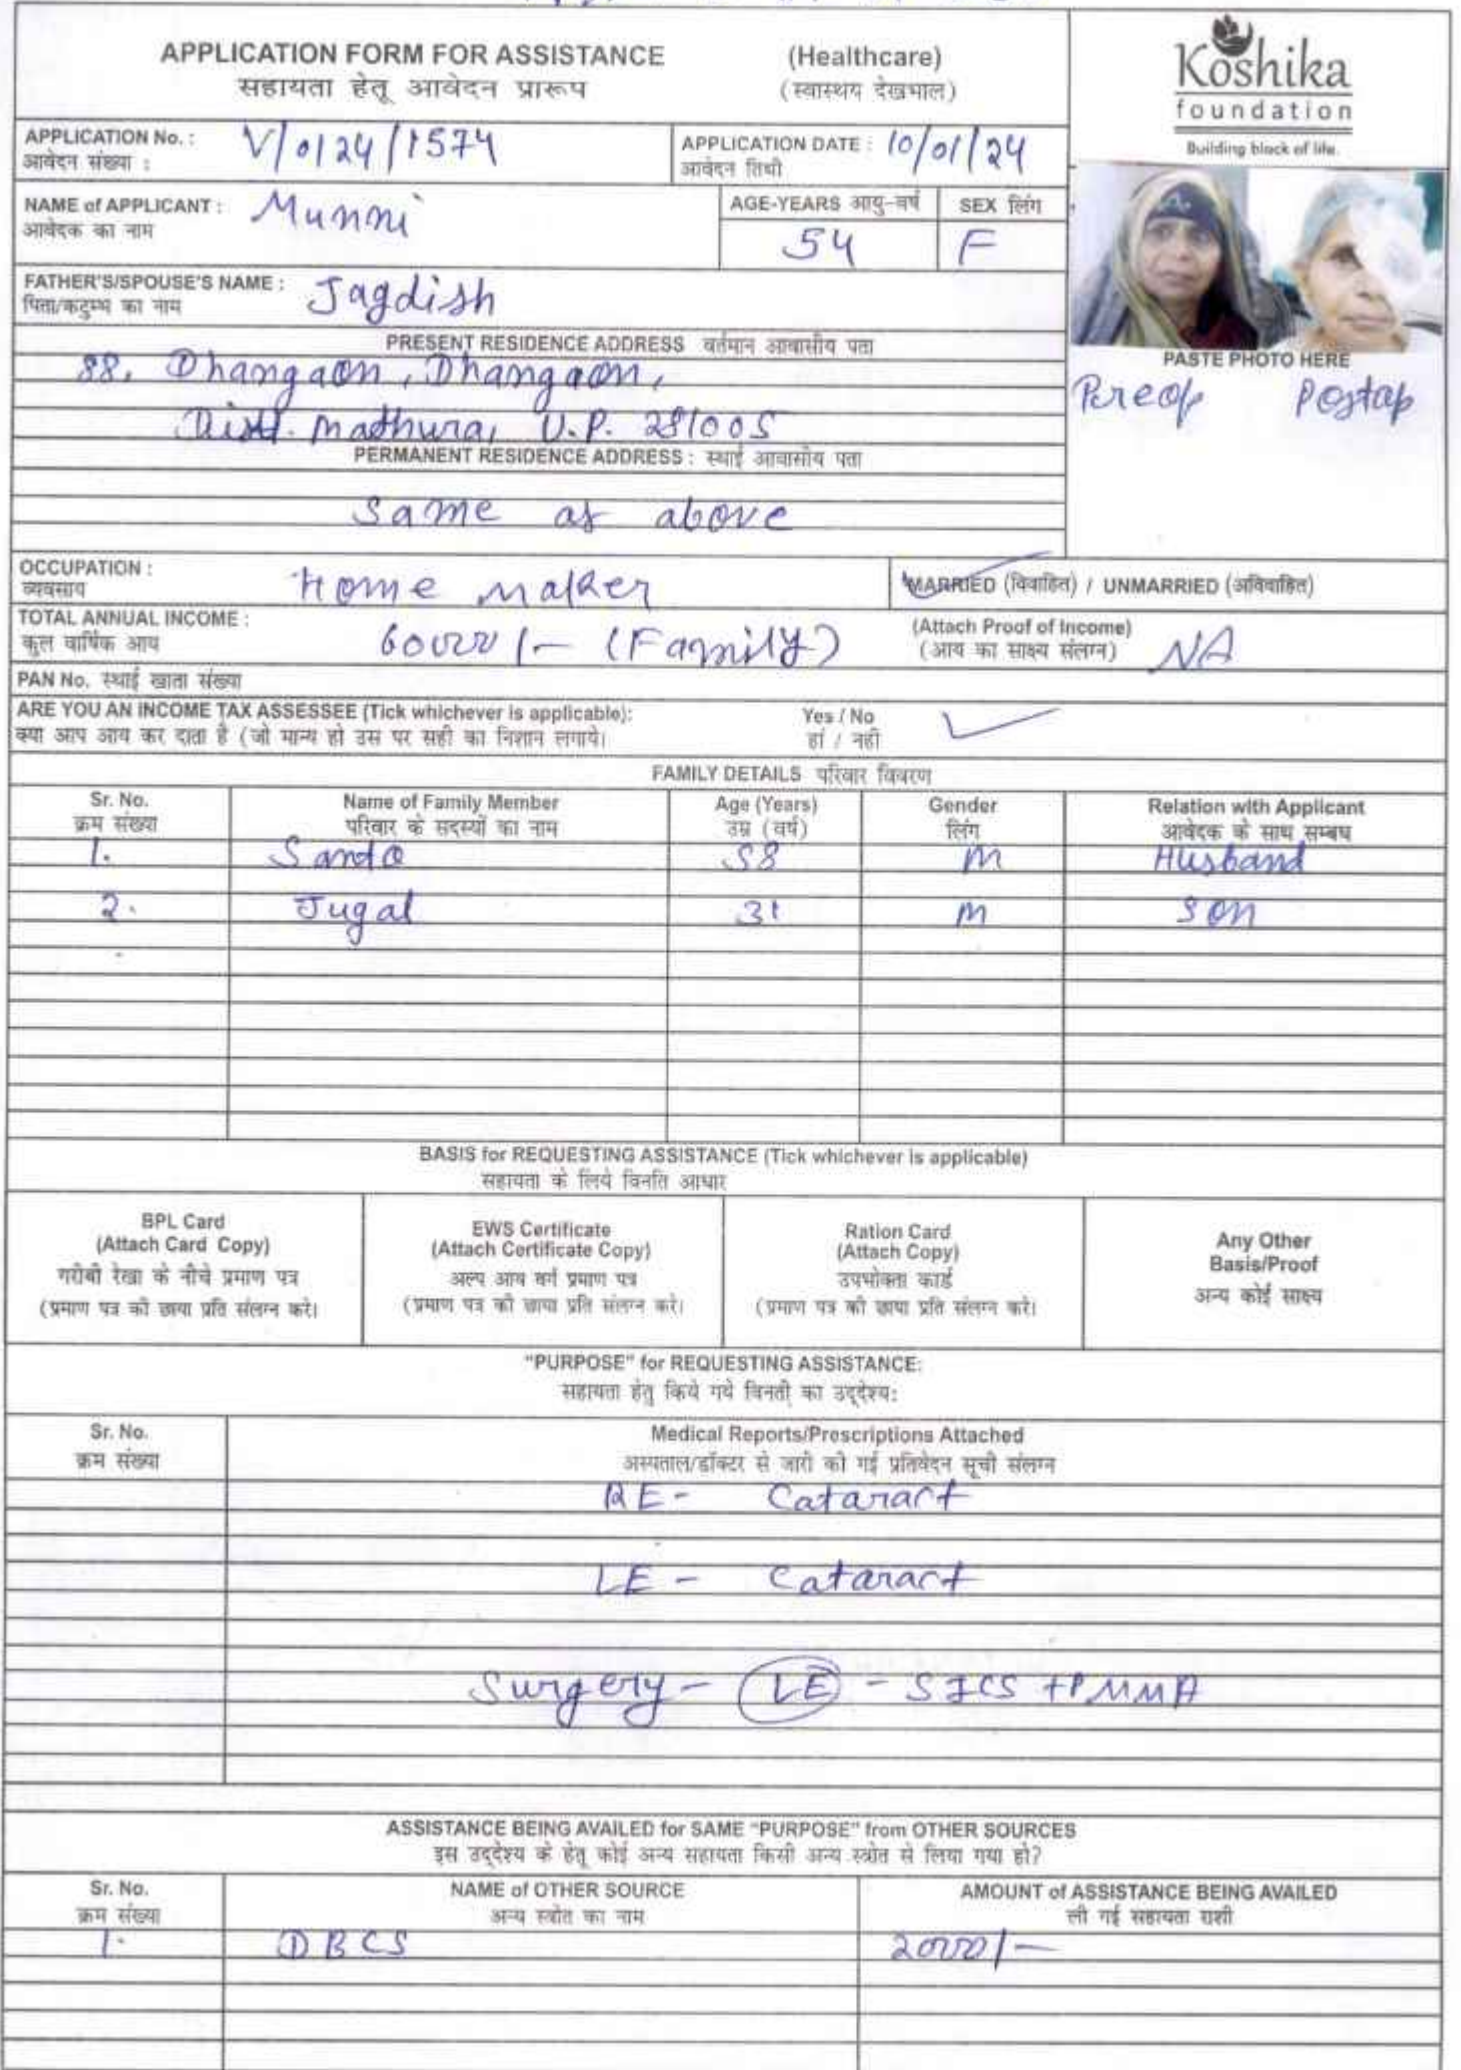 APPLICATION FORM FOR ASSISTANCE (Healthcare)
सहायता हेतू आवेदन प्रारूप (स्वास्थय देखभाल)
Koshika
foundation
Building block of life.
APPLICATION No. : V/0124/1574
आवेदन संख्या :
APPLICATION DATE : 10/01/24
आवेदन तिथी
NAME of APPLICANT : Munni
आवेदक का नाम
AGE-YEARS आयु-वर्ष 54
SEX लिंग F
FATHER'S/SPOUSE'S NAME : Jagdish
पिता/कटुम्ध का नाम
PASTE PHOTO HERE
Preop Postop
PRESENT RESIDENCE ADDRESS वर्तमान आवासीय पता
88, Dhangaon, Dhangaon,
Distt. Mathura, U.P. 281005
PERMANENT RESIDENCE ADDRESS : स्थाई आवासीय पता
Same as above
OCCUPATION : Home maker
व्यवसाय
MARRIED (विवाहित) / UNMARRIED (अविवाहित)
TOTAL ANNUAL INCOME : 60000/- (Family)
कुल वार्षिक आय
(Attach Proof of Income) NA
(आय का साक्ष्य संलग्न)
PAN No. स्थाई खाता संख्या
ARE YOU AN INCOME TAX ASSESSEE (Tick whichever is applicable): Yes / No
क्या आप आय कर दाता है (जो मान्य हो उस पर सही का निशान लगाये। हां / नही
FAMILY DETAILS परिवार विवरण
Sr. No. Name of Family Member Age (Years) Gender Relation with Applicant
क्रम संख्या परिवार के सदस्यों का नाम उम्र (वर्ष) लिंग आवेदक के साथ सम्बध
1. 58 M Husband
2. Jugal 31 M Son
BASIS for REQUESTING ASSISTANCE (Tick whichever is applicable)
सहायता के लिये विनति आधार
BPL Card
(Attach Card Copy)
गरीबी रेखा के नीचे प्रमाण पत्र
(प्रमाण पत्र की छाया प्रति संलग्न करे।
EWS Certificate
(Attach Certificate Copy)
अल्प आय वर्ग प्रमाण पत्र
(प्रमाण पत्र की छाया प्रति संलग्न करे।
Ration Card
(Attach Copy)
उपभोक्ता कार्ड
(प्रमाण पत्र की छाया प्रति संलग्न करे।
Any Other
Basis/Proof
अन्य कोई साक्ष्य
"PURPOSE" for REQUESTING ASSISTANCE:
सहायता हेतु किये गये विनती का उद्देश्य:
Sr. No. Medical Reports/Prescriptions Attached
क्रम संख्या अस्पताल/डॉक्टर से जारी की गई प्रतिवेदन सूची संलग्न
RE - Cataract
LE - Cataract
Surgery - LE - SICS + PMMA
ASSISTANCE BEING AVAILED for SAME "PURPOSE" from OTHER SOURCES
इस उद्देश्य के हेतू कोई अन्य सहायता किसी अन्य स्त्रोत से लिया गया हो?
Sr. No. NAME of OTHER SOURCE AMOUNT of ASSISTANCE BEING AVAILED
क्रम संख्या अन्य स्त्रोत का नाम ली गई सहायता राशी
1. DBCS 2000/-